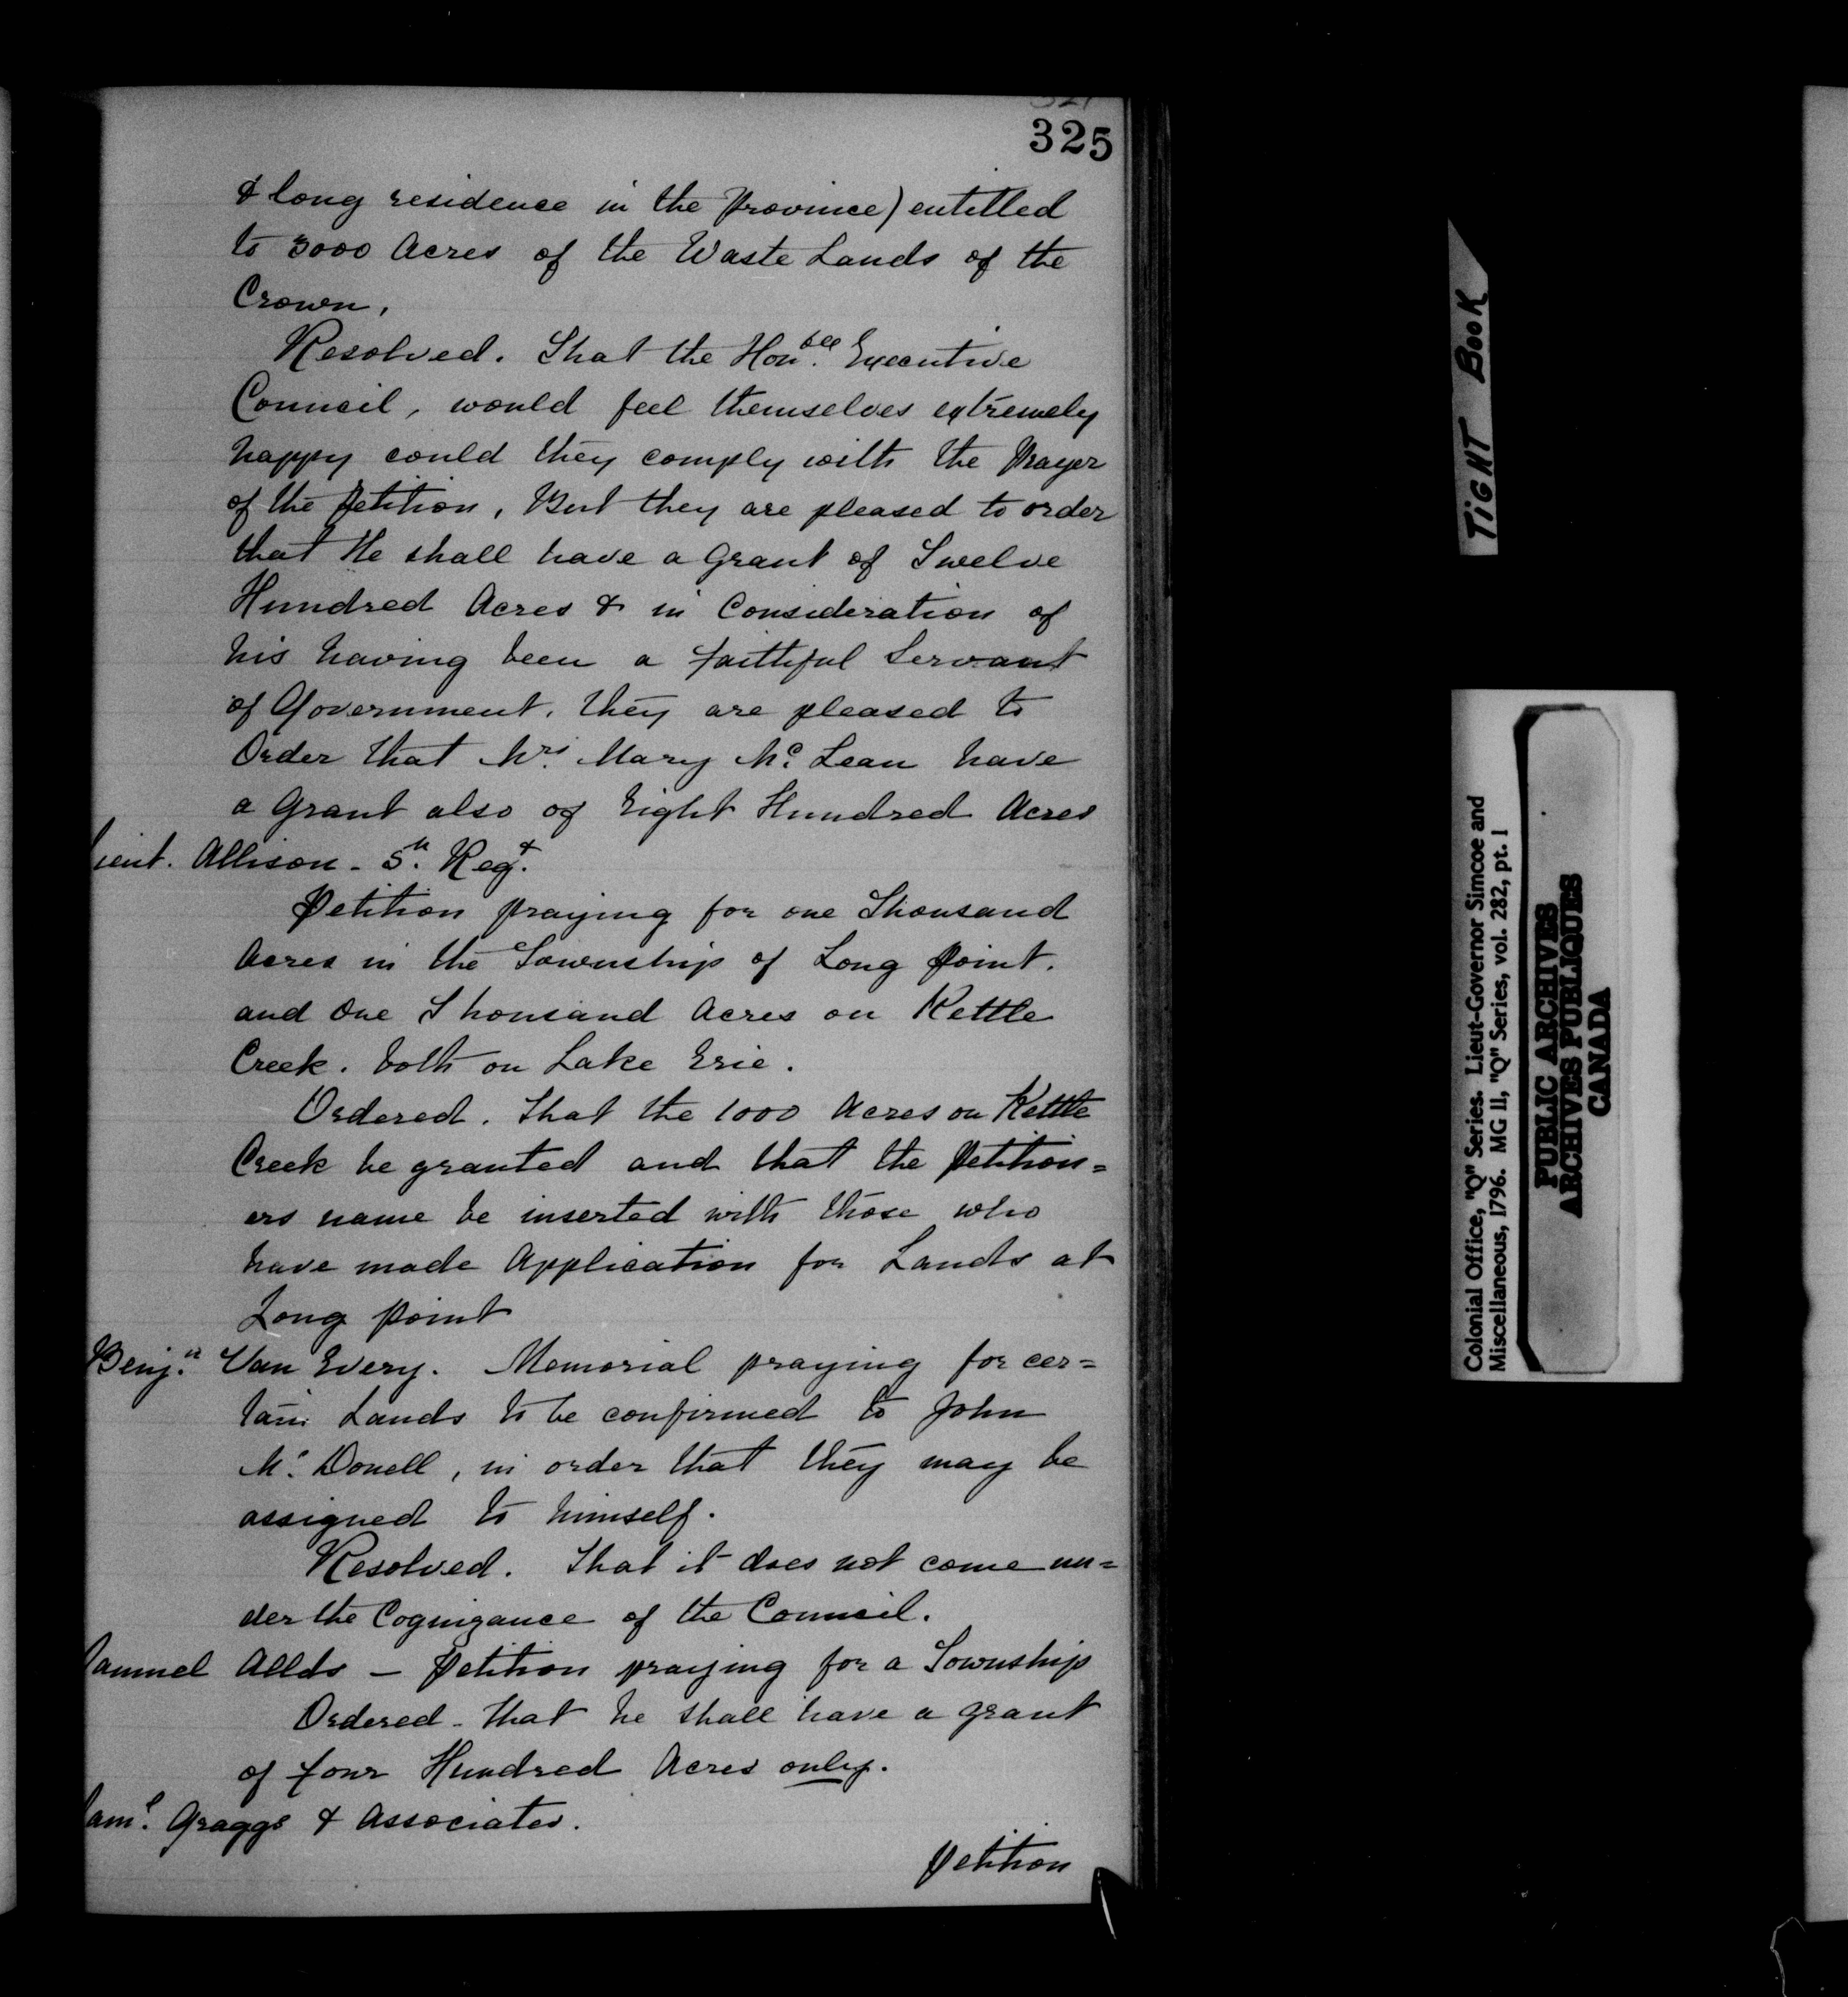 325
& long residence in the Province) entitled
to 3000 Acres of the Waste Lands of the
Crown,
Resolved. That the Honble. Executive
Council, would feel themselves extremely
happy could they comply with the Prayer
of the Petition, But they are pleased to order
that He shall have a Grant of Twelve
Hundred Acres & in Consideration of
his having been a faithful Servant
of Government. they are pleased to
Order that Mrs. Mary Mc. Lean have
a Grant also of Eight Hundred Acres
ieut. Allison - 5th. Regt.
Petition praying for one Thousand
Acres in the Township of Long Point.
and One Thousand Acres on Kettle
Creek. both on Lake Erie.
Ordered. that the 1000 Acres on Kettle
Creek be granted and that the Petition=
ers name be inserted with those who
have made Application for Lands at
Long point
Benjn. Van Every. Memorial praying for cer=
tain Lands to be confirmed to John
Mc. Donell, in order that they may be
assigned to himself.
Resolved. that it does not come un=
der the Cognizance of the Council.
amuel Allds — Petition praying for a Township
Ordered - that he shall have a grant
of four Hundred Acres only.
aml. Graggs & Associates.
Petition
TIGHT BOOK
Colonial Office, "Q" Series. Lieut-Governor Simcoe and
Miscellaneous, 1796. MG 11, "Q" Series, vol. 282, pt. 1
PUBLIC ARCHIVES
ARCHIVES PUBLIQUES
CANADA